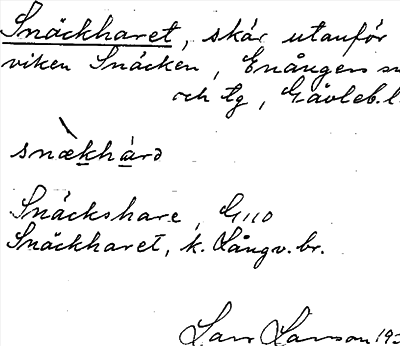 Snäckharet, skär utanför
viken Snäcken, Enångers
och tg, Gävleb.l
snækhàrə
Snäckshare, G110
Snäckharet, k. Långv. br.
Lars Larsson 193